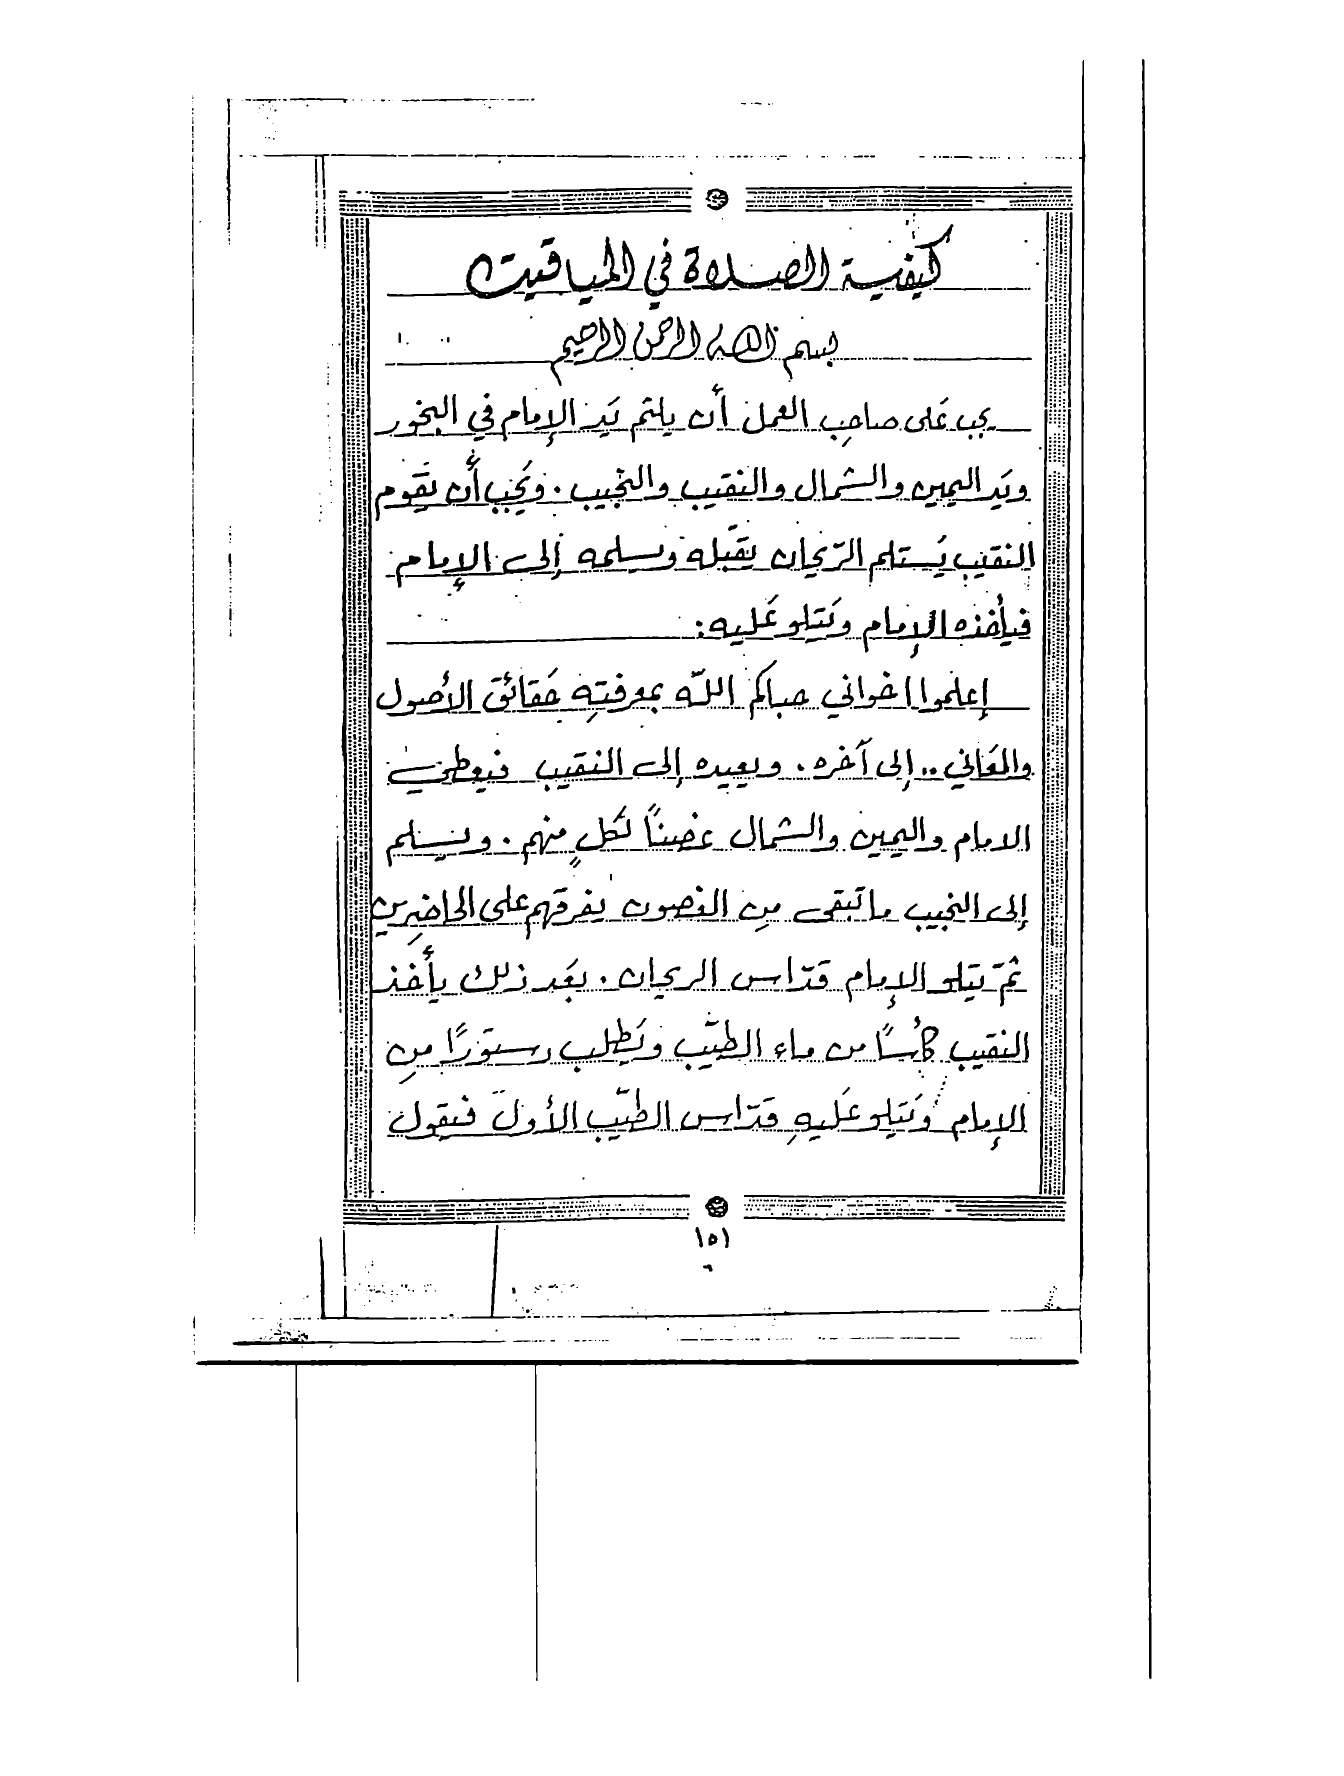 كيفية الصلاة في المياقيت
بسم الله الرحمن الرحيم
يجب عَلى صاحِب العمل أن يلثم يَد الإمام في البخور
ويَد اليمين والشمال والنقيب والنجيب. ويَجب أن يقَوم
النقيب يَستلم الرّيحان يقبّله ويسلمه إلى الإمام
فيأخذه الإمام ويَتلو عَليه:
إعلموا اخواني حباكم اللّه بمعرفتِه حَقائق الأصول
والمعَاني .. إلى آخره. ويعيده إلى النقيب فيعطي
الامام واليمين والشمال غصناً لكَلٍ منهم. ويسلم
إلى النجيب ما تبقى مِن الغصون يفرقهم على الحاضِرين
ثمّ يتلو الإمام قدّاس الريحان. بعَد ذلك يأخذ
النقيب كأسًا من ماء الطيّب ويَطلب دستورًا مِن
الإمام ويَتلو عَليهِ قدّاس الطيّب الأول فيقول
١٥١